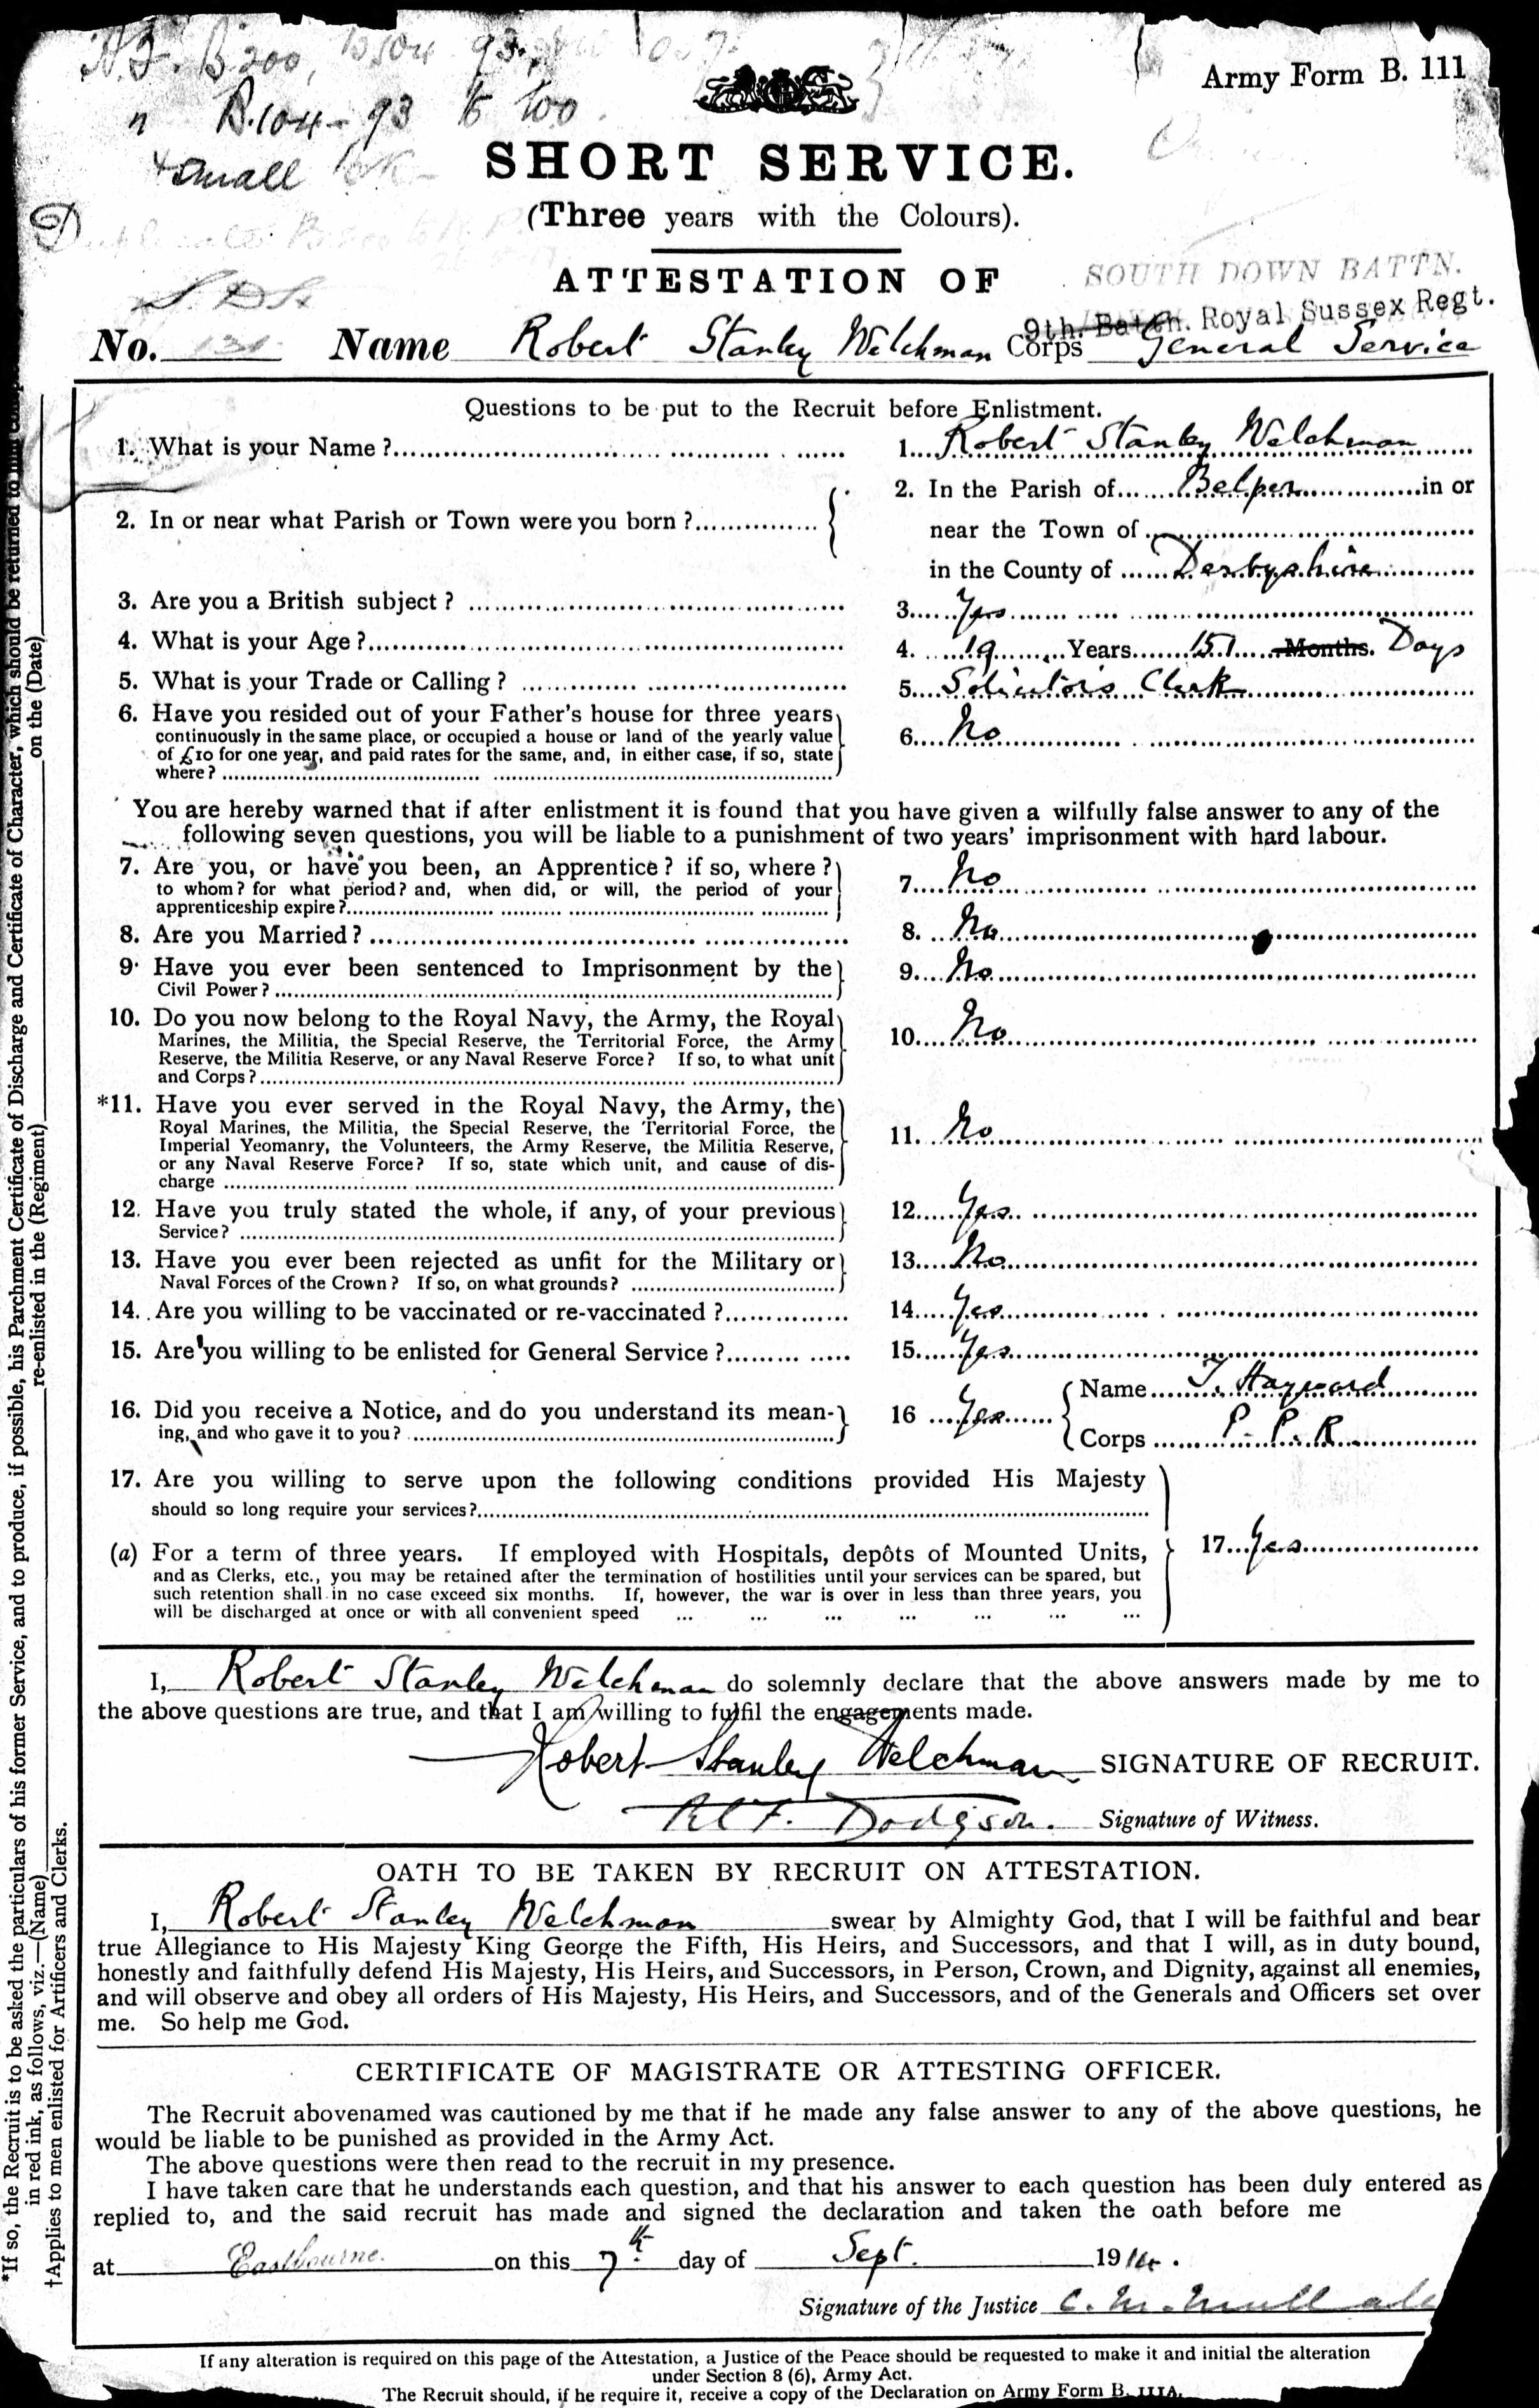 A.F. B 200, B104 93
" B.104-93 to 100
+ Small
Army Form B. 111
SHORT SERVICE.
(Three years with the Colours).
ATTESTATION OF
SOUTH DOWN BATTN.
9th. Battn. Royal Sussex Regt.
No. Name Robert Stanley Welchman Corps General Service
Questions to be put to the Recruit before Enlistment.
1. What is your Name ? 1. Robert Stanley Welchman
2. In or near what Parish or Town were you born ? 2. In the Parish of Belper in or
near the Town of
in the County of Derbyshire
3. Are you a British subject ? 3. Yes
4. What is your Age ? 4. 19 Years 151 Months. Days
5. What is your Trade or Calling ? 5. Solicitor's Clerk
6. Have you resided out of your Father's house for three years
continuously in the same place, or occupied a house or land of the yearly value 6. No
of £10 for one year, and paid rates for the same, and, in either case, if so, state
where ?
You are hereby warned that if after enlistment it is found that you have given a wilfully false answer to any of the
following seven questions, you will be liable to a punishment of two years' imprisonment with hard labour.
7. Are you, or have you been, an Apprentice ? if so, where ?
to whom ? for what period ? and, when did, or will, the period of your 7. No
apprenticeship expire ?
8. Are you Married ? 8. No
9. Have you ever been sentenced to Imprisonment by the 9. No
Civil Power ?
10. Do you now belong to the Royal Navy, the Army, the Royal
Marines, the Militia, the Special Reserve, the Territorial Force, the Army 10. No
Reserve, the Militia Reserve, or any Naval Reserve Force ? If so, to what unit
and Corps ?
*11. Have you ever served in the Royal Navy, the Army, the
Royal Marines, the Militia, the Special Reserve, the Territorial Force, the
Imperial Yeomanry, the Volunteers, the Army Reserve, the Militia Reserve, 11. No
or any Naval Reserve Force ? If so, state which unit, and cause of dis-
charge
12. Have you truly stated the whole, if any, of your previous 12. Yes
Service ?
13. Have you ever been rejected as unfit for the Military or 13. No
Naval Forces of the Crown ? If so, on what grounds ?
14. Are you willing to be vaccinated or re-vaccinated ? 14. Yes
15. Are you willing to be enlisted for General Service ? 15. Yes
16. Did you receive a Notice, and do you understand its mean- 16 Yes Name T. Hayward
ing, and who gave it to you ? Corps P. P. R
17. Are you willing to serve upon the following conditions provided His Majesty
should so long require your services ?
(a) For a term of three years. If employed with Hospitals, depôts of Mounted Units, 17. Yes
and as Clerks, etc., you may be retained after the termination of hostilities until your services can be spared, but
such retention shall in no case exceed six months. If, however, the war is over in less than three years, you
will be discharged at once or with all convenient speed ... ... ... ... ... ... ...
I, Robert Stanley Welchman do solemnly declare that the above answers made by me to
the above questions are true, and that I am willing to fulfil the engagements made.
Robert Stanley Welchman SIGNATURE OF RECRUIT.
Dodgson. Signature of Witness.
OATH TO BE TAKEN BY RECRUIT ON ATTESTATION.
I, Robert Stanley Welchman swear by Almighty God, that I will be faithful and bear
true Allegiance to His Majesty King George the Fifth, His Heirs, and Successors, and that I will, as in duty bound,
honestly and faithfully defend His Majesty, His Heirs, and Successors, in Person, Crown, and Dignity, against all enemies,
and will observe and obey all orders of His Majesty, His Heirs, and Successors, and of the Generals and Officers set over
me. So help me God.
CERTIFICATE OF MAGISTRATE OR ATTESTING OFFICER.
The Recruit abovenamed was cautioned by me that if he made any false answer to any of the above questions, he
would be liable to be punished as provided in the Army Act.
The above questions were then read to the recruit in my presence.
I have taken care that he understands each question, and that his answer to each question has been duly entered as
replied to, and the said recruit has made and signed the declaration and taken the oath before me
at Eastbourne. on this 7th day of Sept. 1914.
Signature of the Justice C. M.
If any alteration is required on this page of the Attestation, a Justice of the Peace should be requested to make it and initial the alteration
under Section 8 (6), Army Act.
The Recruit should, if he require it, receive a copy of the Declaration on Army Form B. 111A.
*If so, the Recruit is to be asked the particulars of his former Service, and to produce, if possible, his Parchment Certificate of Discharge and Certificate of Character, which should be returned to him
in red ink, as follows, viz.—(Name) re-enlisted in the (Regiment) on the (Date)
†Applies to men enlisted for Artificers and Clerks.